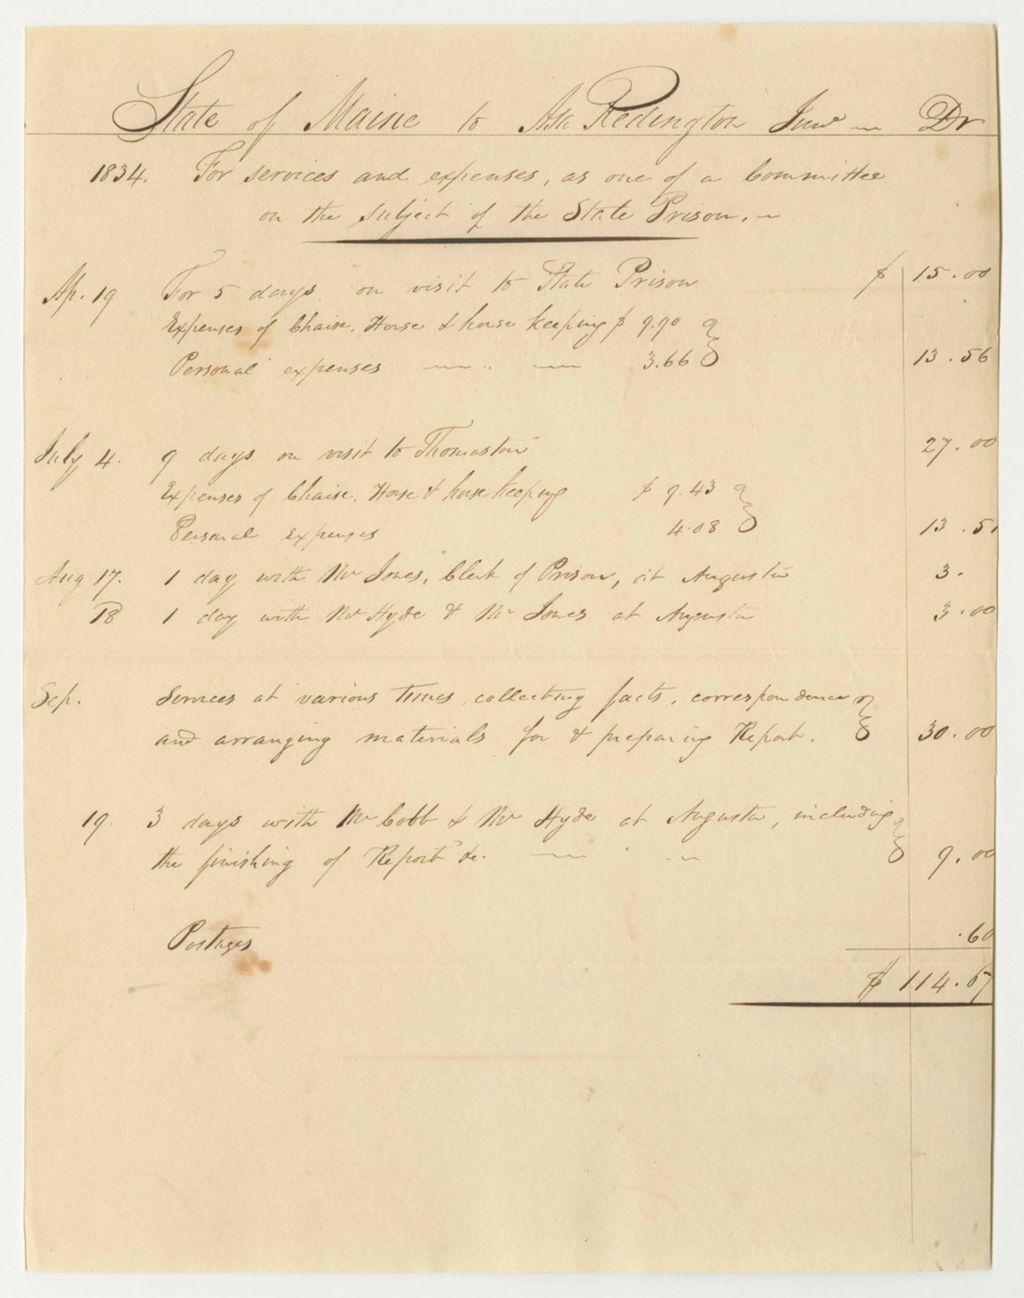 State of Maine to Asa Redington Junr Dr
1834. For services and expenses, as one of a Committee
on the subject of the State Prison.
Ap. 19 For 5 days on visit to State Prison $ 15.00
Expenses of Chaise, Horse & horse keeping $ 9.90
Personal expenses 3.66 13.56
July 4. 9 days on visit to Thomaston 27.00
Expenses of Chaise, Horse & horse keeping $ 9.43
Personal expenses 4.08 13.51
Aug 17. 1 day with Mr Jones, Clerk of Prison, at Augusta 3.
18 1 day with Mr Hyde & Mr Jones at Augusta 3.00
Sep. Services at various times, collecting facts, correspondence
and arranging materials for & preparing Report. 30.00
19. 3 days with Mr Cobb & Mr Hyde at Augusta, including
the finishing of Report &c. 9.00
Postages .60
$ 114.67